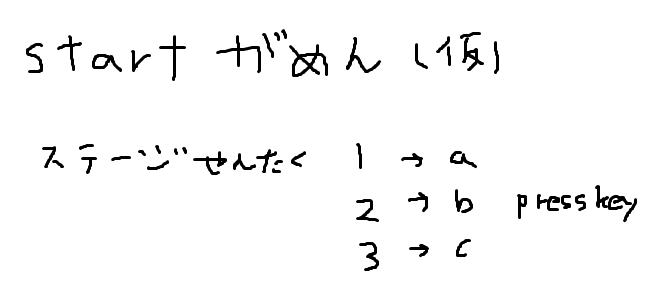 start がめん (仮)
ステージせんたく 1 → a
2 → b press key
3 → c